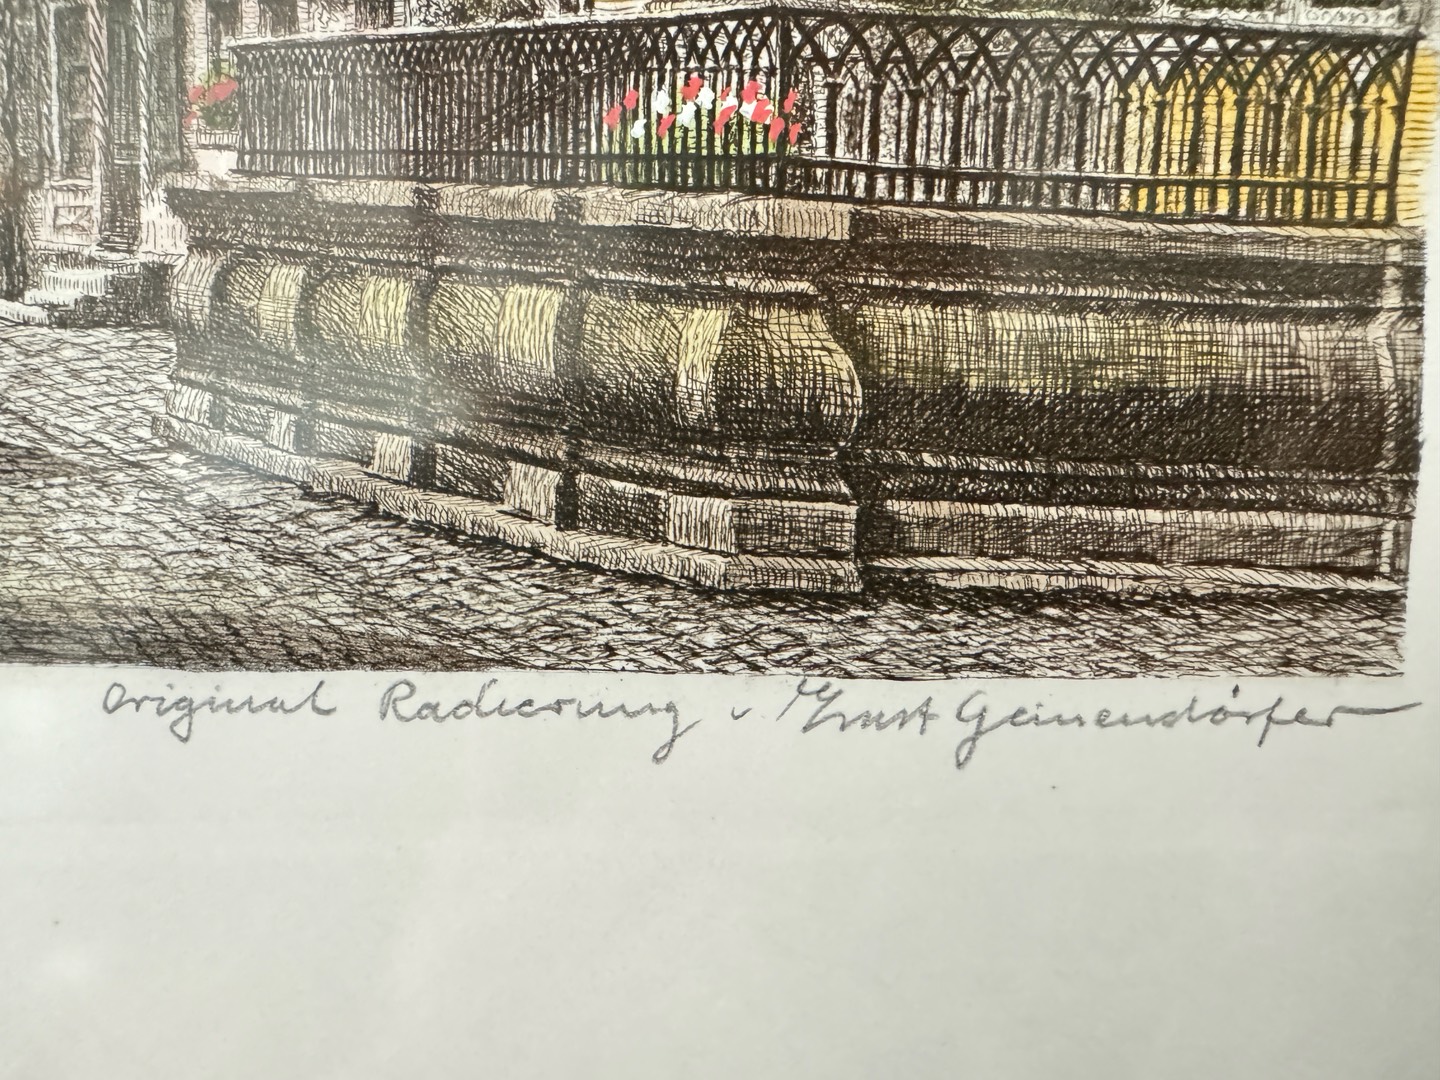 Original Radierung v. Ernst Geissendörfer